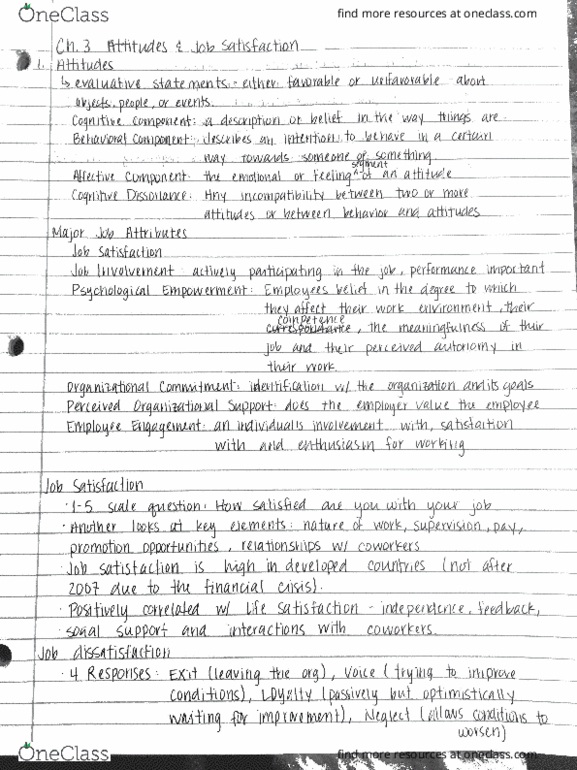 OneClass
find more resources at oneclass.com
Ch. 3 Attitudes & Job Satisfaction
1. Attitudes
↳ evaluative statements - either favorable or unfavorable about
objects, people, or events.
Cognitive Component: a description or belief in the way things are
Behavioral Component: describes an intention to behave in a certain
way towards someone or something
segment
Affective Component: the emotional or feeling ^ of an attitude
Cognitive Dissonance: Any incompatibility between two or more
attitudes or between behavior and attitudes
Major Job Attributes
Job Satisfaction
Job Involvement: actively participating in the job, performance important
Psychological Empowerment: Employees belief in the degree to which
they affect their work environment, their
competance
, the meaningfulness of their
job and their perceived autonomy in
their work.
Organizational Commitment: identification w/ the organization and its goals
Perceived Organizational Support: does the employer value the employee
Employee Engagement: an individual's involvement with, satisfaction
with and enthusiasm for working
Job Satisfaction
· 1-5 scale question: How satisfied are you with your job
· Another looks at key elements: nature of work, supervision, pay,
promotion opportunities, relationships w/ coworkers
· Job satisfaction is high in developed countries (not after
2007 due to the financial crisis).
· Positively correlated w/ life satisfaction - independence, feedback,
social support and interactions with coworkers.
Job dissatisfaction
· 4 Responses: Exit (leaving the org), Voice (trying to improve
conditions), Loyalty (passively but optimistically
waiting for improvement), Neglect (allows conditions to
worsen)
OneClass
find more resources at oneclass.com